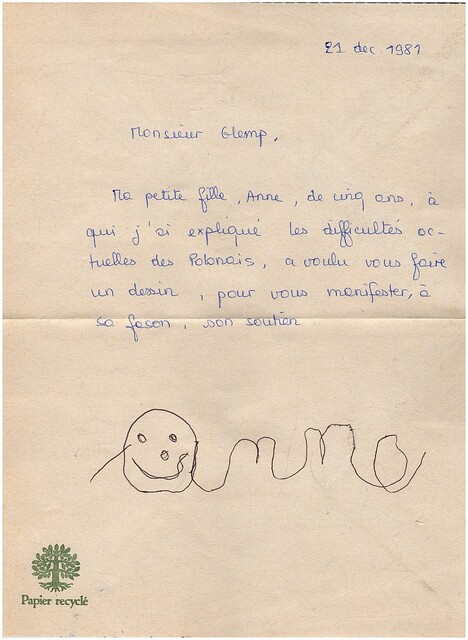 21 dec 1981
Monsieur Glemp,
Ma petite fille, Anne, de cinq ans, à
qui j'ai expliqué les difficultés ac-
tuelles des Polonais, a voulu vous faire
un dessin, pour vous manifester, à
sa façon, son soutien.
anne
Papier recyclé